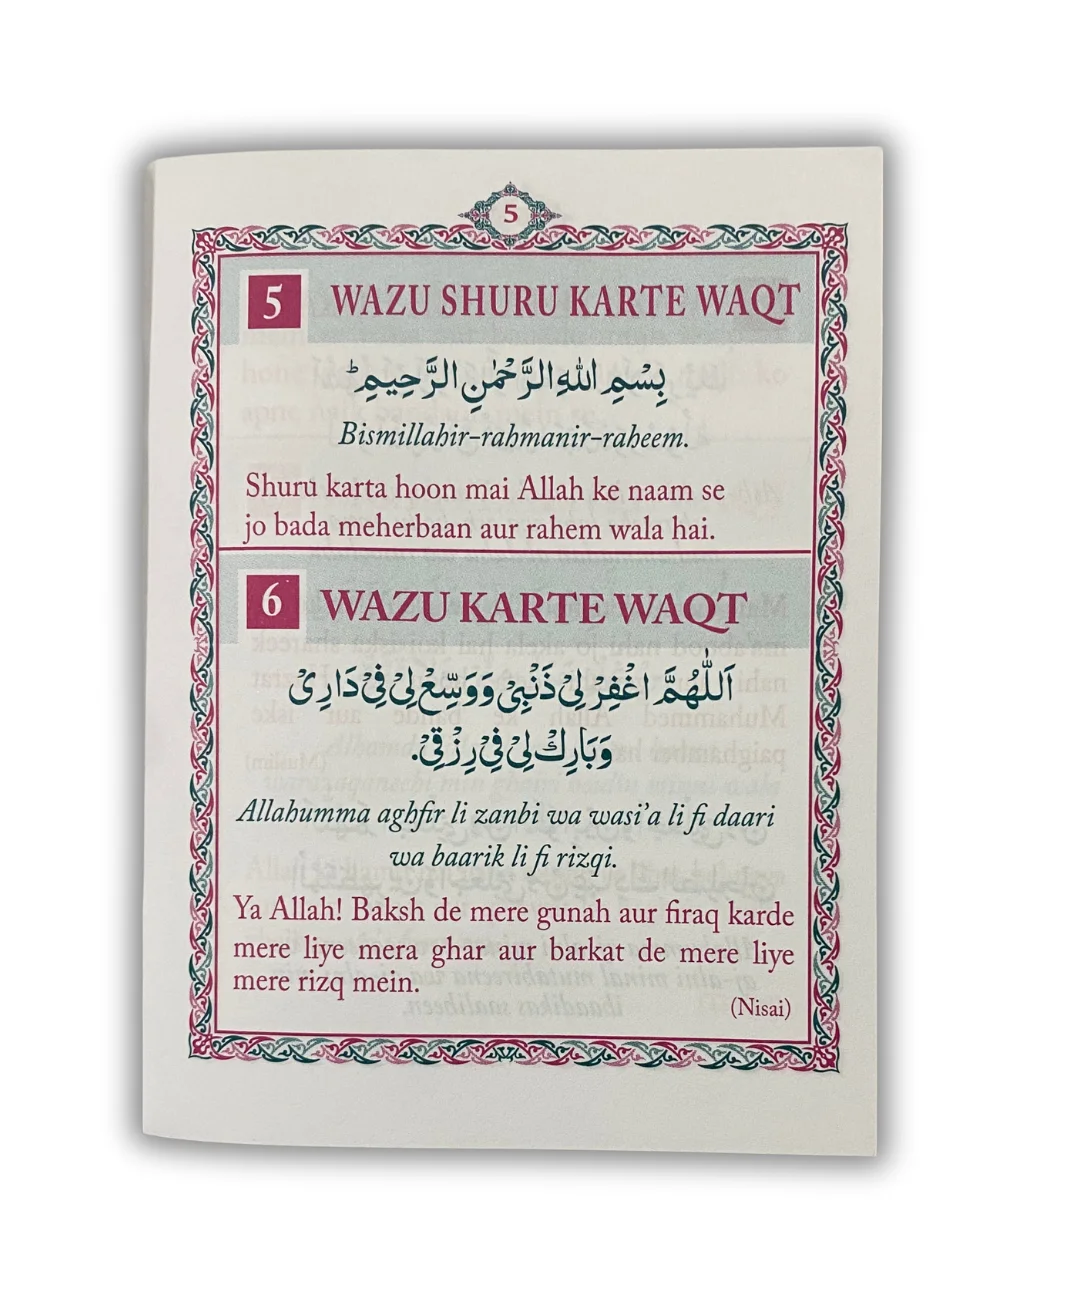 5
5 WAZU SHURU KARTE WAQT
بِسْمِ اللهِ الرَّحْمٰنِ الرَّحِيْمِ ؕ
Bismillahir-rahmanir-raheem.
Shuru karta hoon mai Allah ke naam se
jo bada meherbaan aur rahem wala hai.
6 WAZU KARTE WAQT
اَللّٰهُمَّ اغْفِرْ لِىْ ذَنْبِىْ وَوَسِّعْ لِىْ فِىْ دَارِىْ
وَبَارِكْ لِىْ فِىْ رِزْقِىْ.
Allahumma aghfir li zanbi wa wasi'a li fi daari
wa baarik li fi rizqi.
Ya Allah! Baksh de mere gunah aur firaq karde
mere liye mera ghar aur barkat de mere liye
mere rizq mein.
(Nisai)